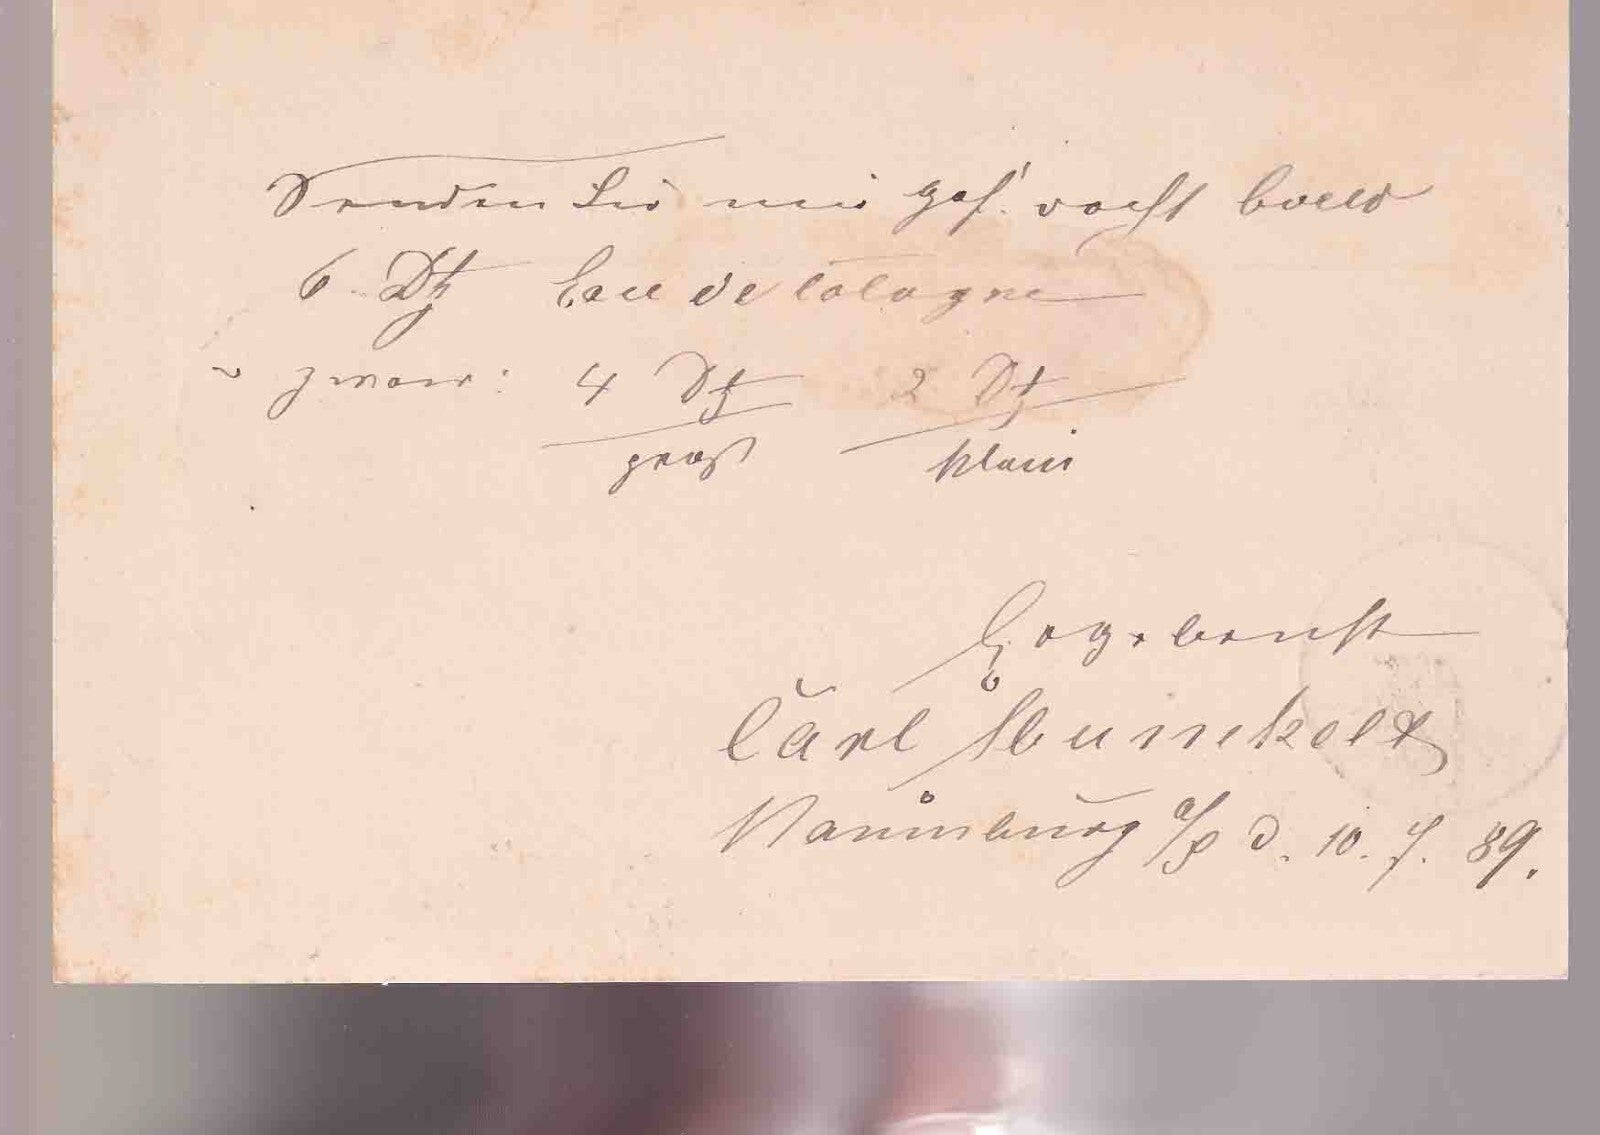 Senden Sie mir gef. recht bald
6 Dtz Eau de Cologne
u zwar: 4 Dtz 2 Dtz
groß klein
Ergebenst
Carl
Naumburg a/S d. 10. 7. 89.